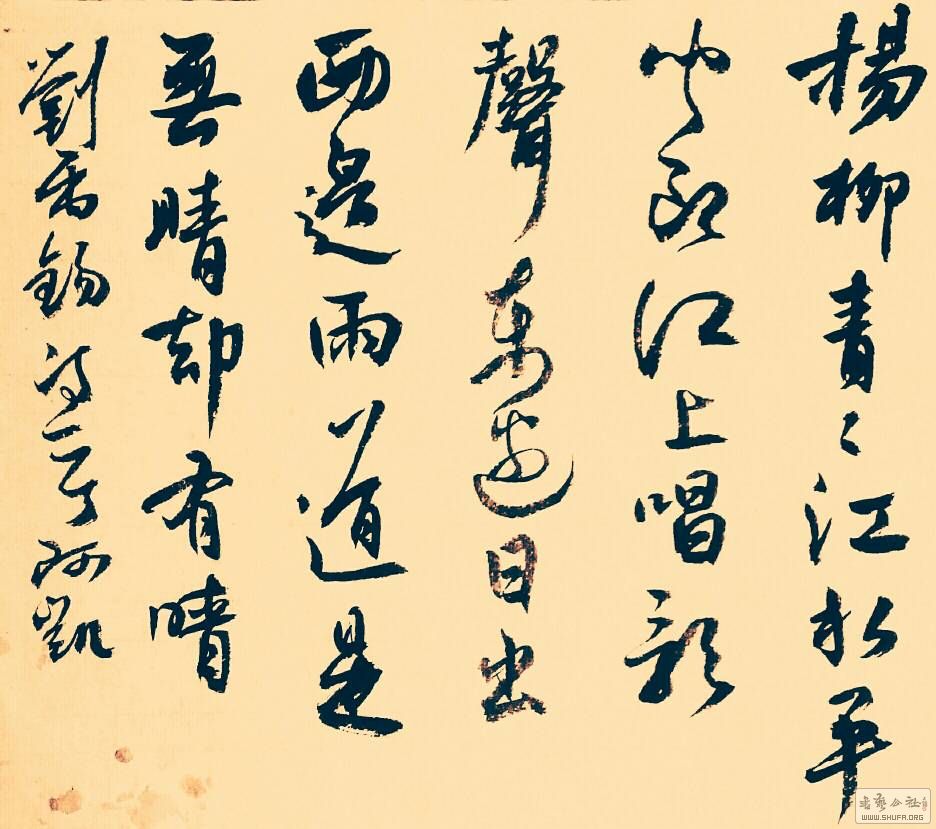 楊柳青々江水平
聞郎江上唱歌
聲東邊日出
西邊雨道是
無晴却有晴
劉禹錫詩一首阿凱
書藝公社
WWW.SHUFA.ORG